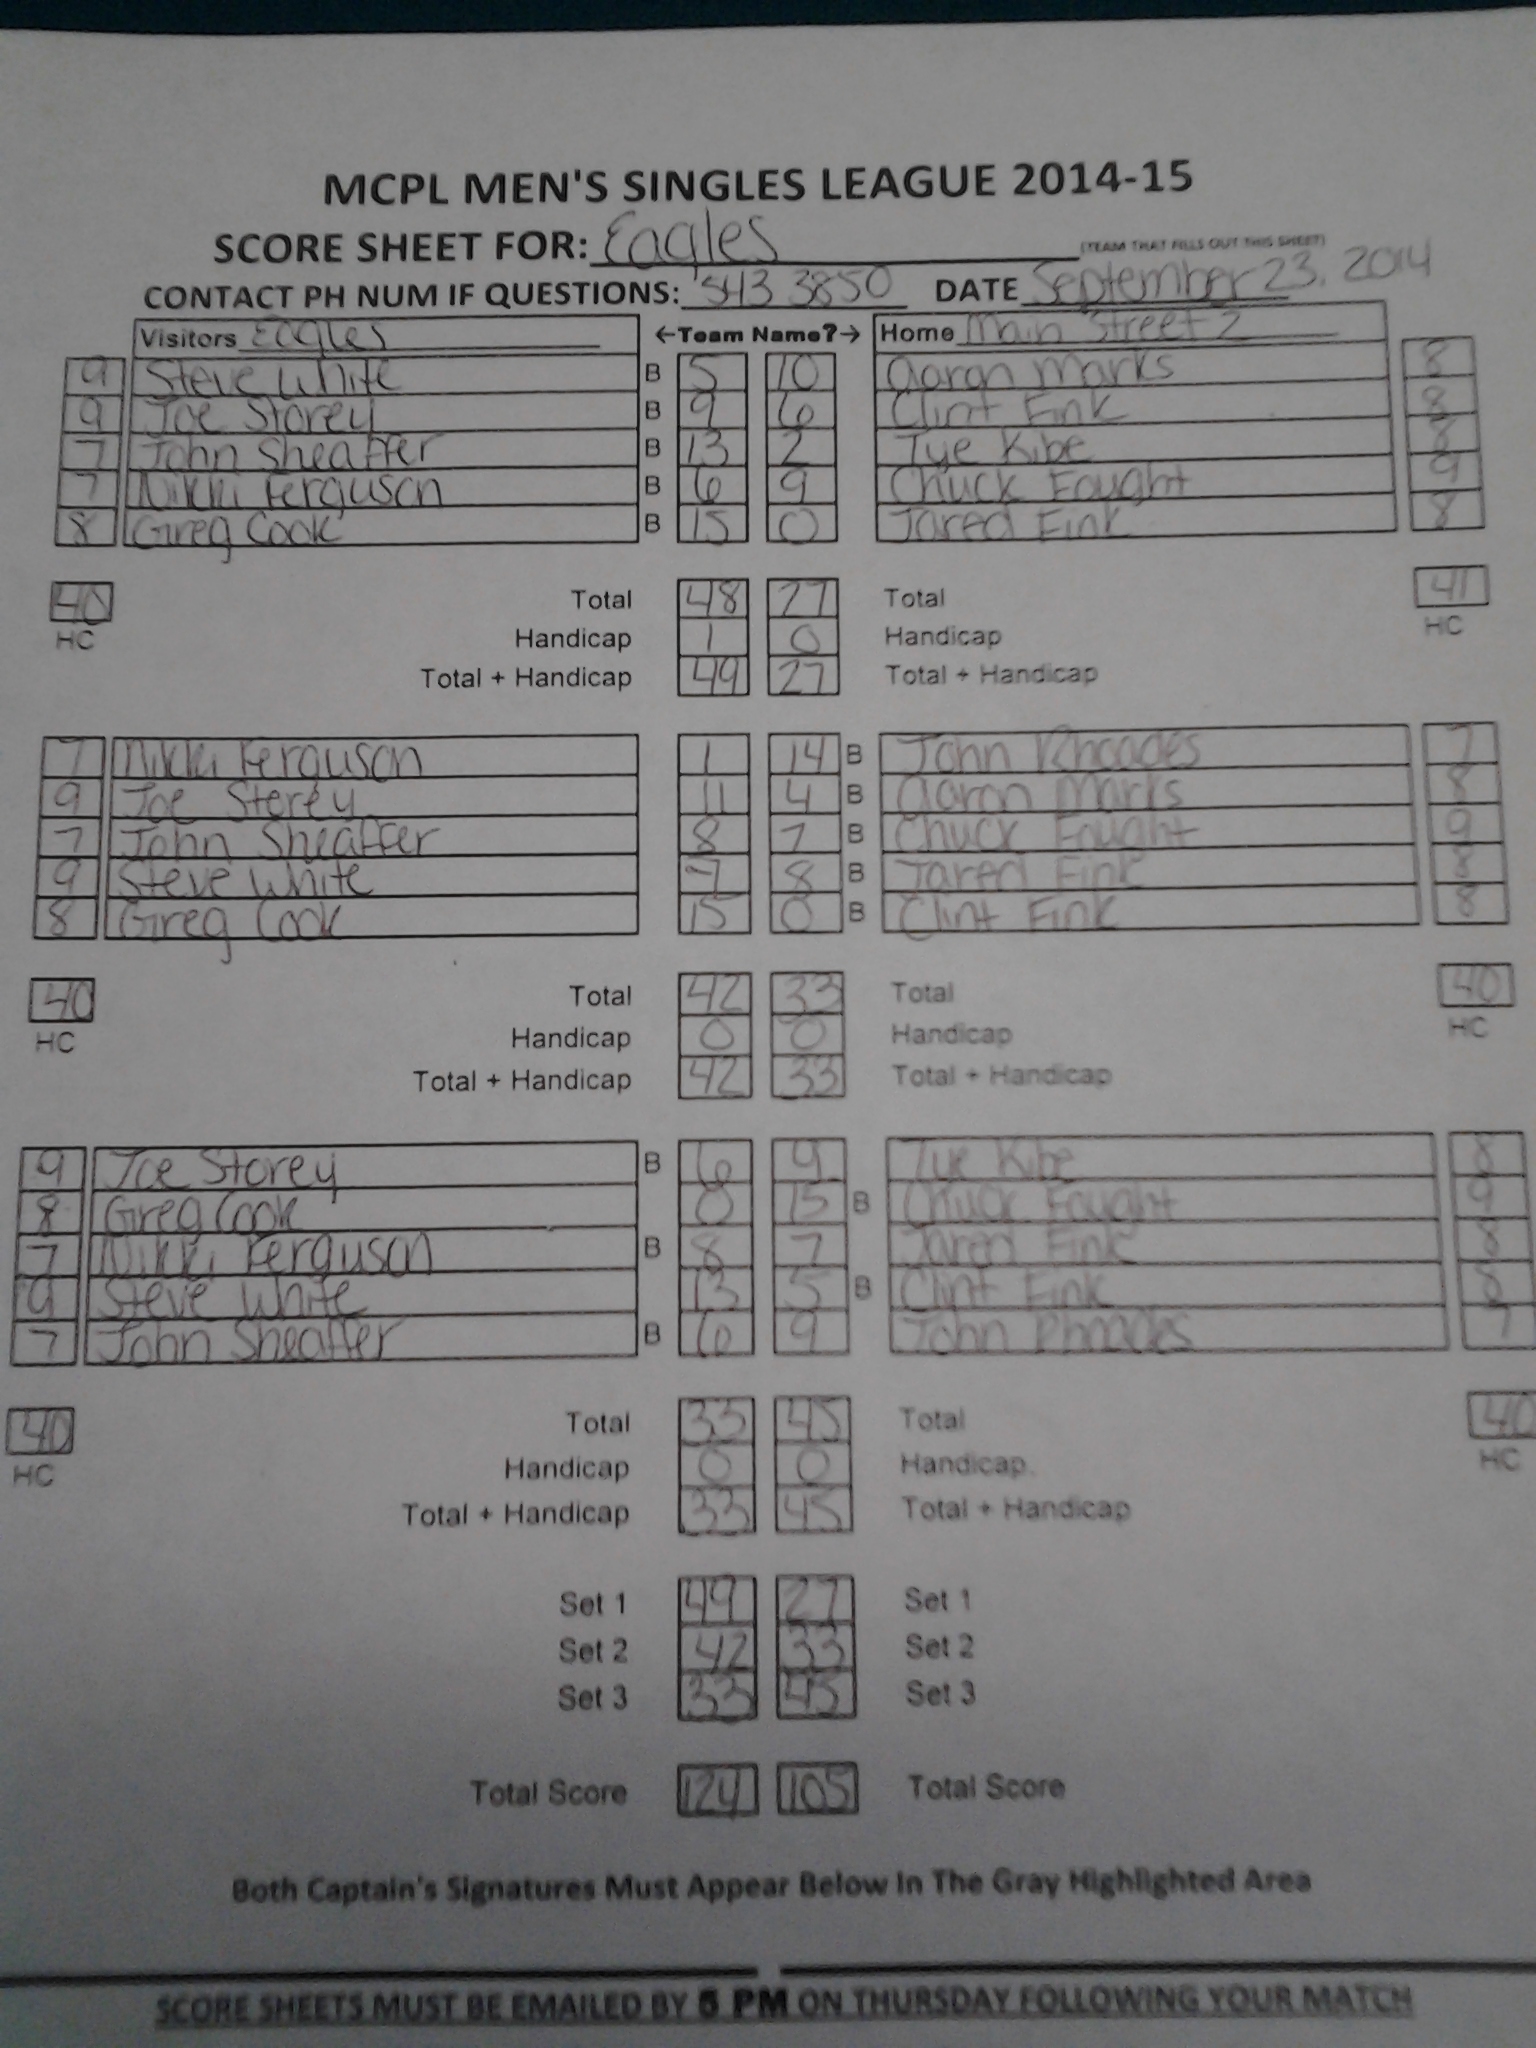 MCPL MEN'S SINGLES LEAGUE 2014-15
SCORE SHEET FOR: Eagles (TEAM THAT FILLS OUT THIS SHEET)
CONTACT PH NUM IF QUESTIONS: 543 3850 DATE September 23, 2014
Visitors Eagles ←Team Name?→ Home Main Street 2
9 Steve White B 5 10 Aaron Marks 8
9 Joe Storey B 9 6 Clint Fink 8
7 John Sheaffer B 13 2 Tye Kibe 8
7 Nikki Ferguson B 6 9 Chuck Fought 9
8 Greg Cook B 15 0 Jared Fink 8
40 Total 48 27 Total 41
HC Handicap 1 0 Handicap HC
Total + Handicap 49 27 Total + Handicap
7 Nikki Ferguson 1 14 B John Rhoades 7
9 Joe Storey 11 4 B Aaron Marks 8
7 John Sheaffer 8 7 B Chuck Fought 9
9 Steve White 7 8 B Jared Fink 8
8 Greg Cook 15 0 B Clint Fink 8
40 Total 42 33 Total 40
HC Handicap 0 0 Handicap HC
Total + Handicap 42 33 Total + Handicap
9 Joe Storey B 6 9 Tye Kibe 8
8 Greg Cook 0 15 B Chuck Fought 9
7 Nikki Ferguson B 8 7 Jared Fink 8
9 Steve White 13 5 B Clint Fink 8
7 John Sheaffer B 6 9 John Rhoades 7
40 Total 33 45 Total 40
HC Handicap 0 0 Handicap HC
Total + Handicap 33 45 Total + Handicap
Set 1 49 27 Set 1
Set 2 42 33 Set 2
Set 3 33 45 Set 3
Total Score 124 105 Total Score
Both Captain's Signatures Must Appear Below In The Gray Highlighted Area
SCORE SHEETS MUST BE EMAILED BY 5 PM ON THURSDAY FOLLOWING YOUR MATCH